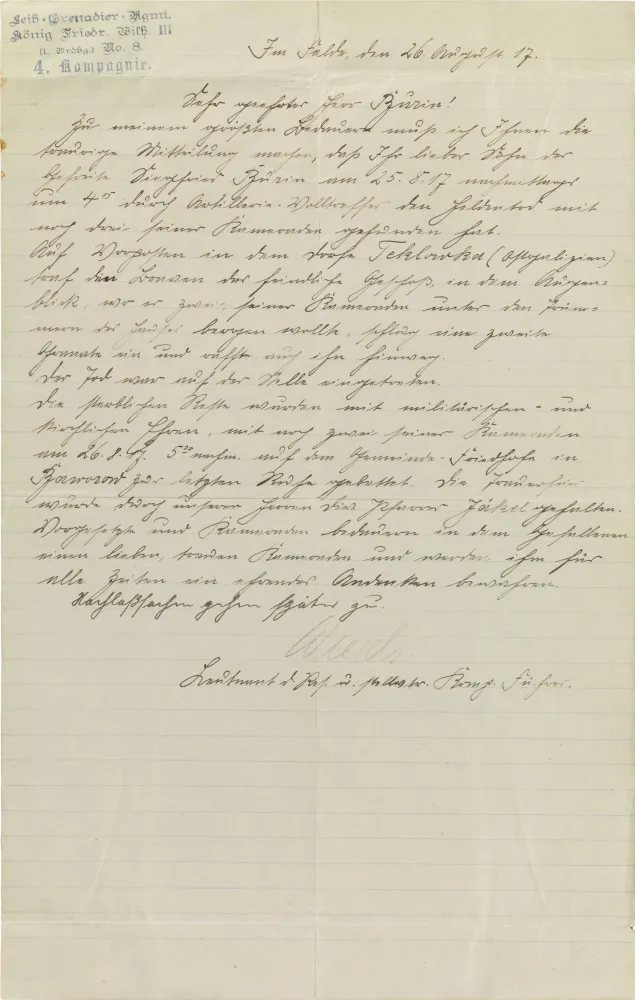 Leib-Grenadier-Rgmt.
König Friedr. Wilh. III
(1. Brdbg.) No. 8.
4. Kompagnie.
Im Felde, den 26 August 17.
Sehr geehrter Herr
Zu meinem größten Bedauern muß ich Ihnen die
traurige Mitteilung machen, daß Ihr lieber Sohn der
Gefreite Siegfried am 25.8.17 nachmittags
um 4 durch Artillerie-Volltreffer den Heldentod mit
noch drei seiner Kameraden gefunden hat.
Auf Vorposten in dem Dorfe Teklowka (Ostgalizien)
traf den Braven das feindliche Geschoß, in dem Augen-
blick, wo er zwei seiner Kameraden unter den Trüm-
mern des Hauses bergen wollte, schlug eine zweite
Granate ein und raffte auch ihn hinweg.
Der Tod war auf der Stelle eingetreten.
Die sterblichen Reste wurden mit militärischen- und
kirchlichen Ehren, mit noch zwei seiner Kameraden
am 26.8.17. 5 nachm. auf dem Gemeinde-Friedhofe in
zur letzten Ruhe gebettet. Die Trauerfeier
wurde durch unseren Herrn Div. Pfarrer Jäkel gehalten.
Vorgesetzte und Kameraden bedauern in dem Gefallenen
einen lieben, treuen Kameraden und werden ihm für
alle Zeiten ein ehrendes Andenken bewahren.
Nachlaßsachen gehen später zu.
Leutnant d. Res. u. stellvtr. Komp. Führer.